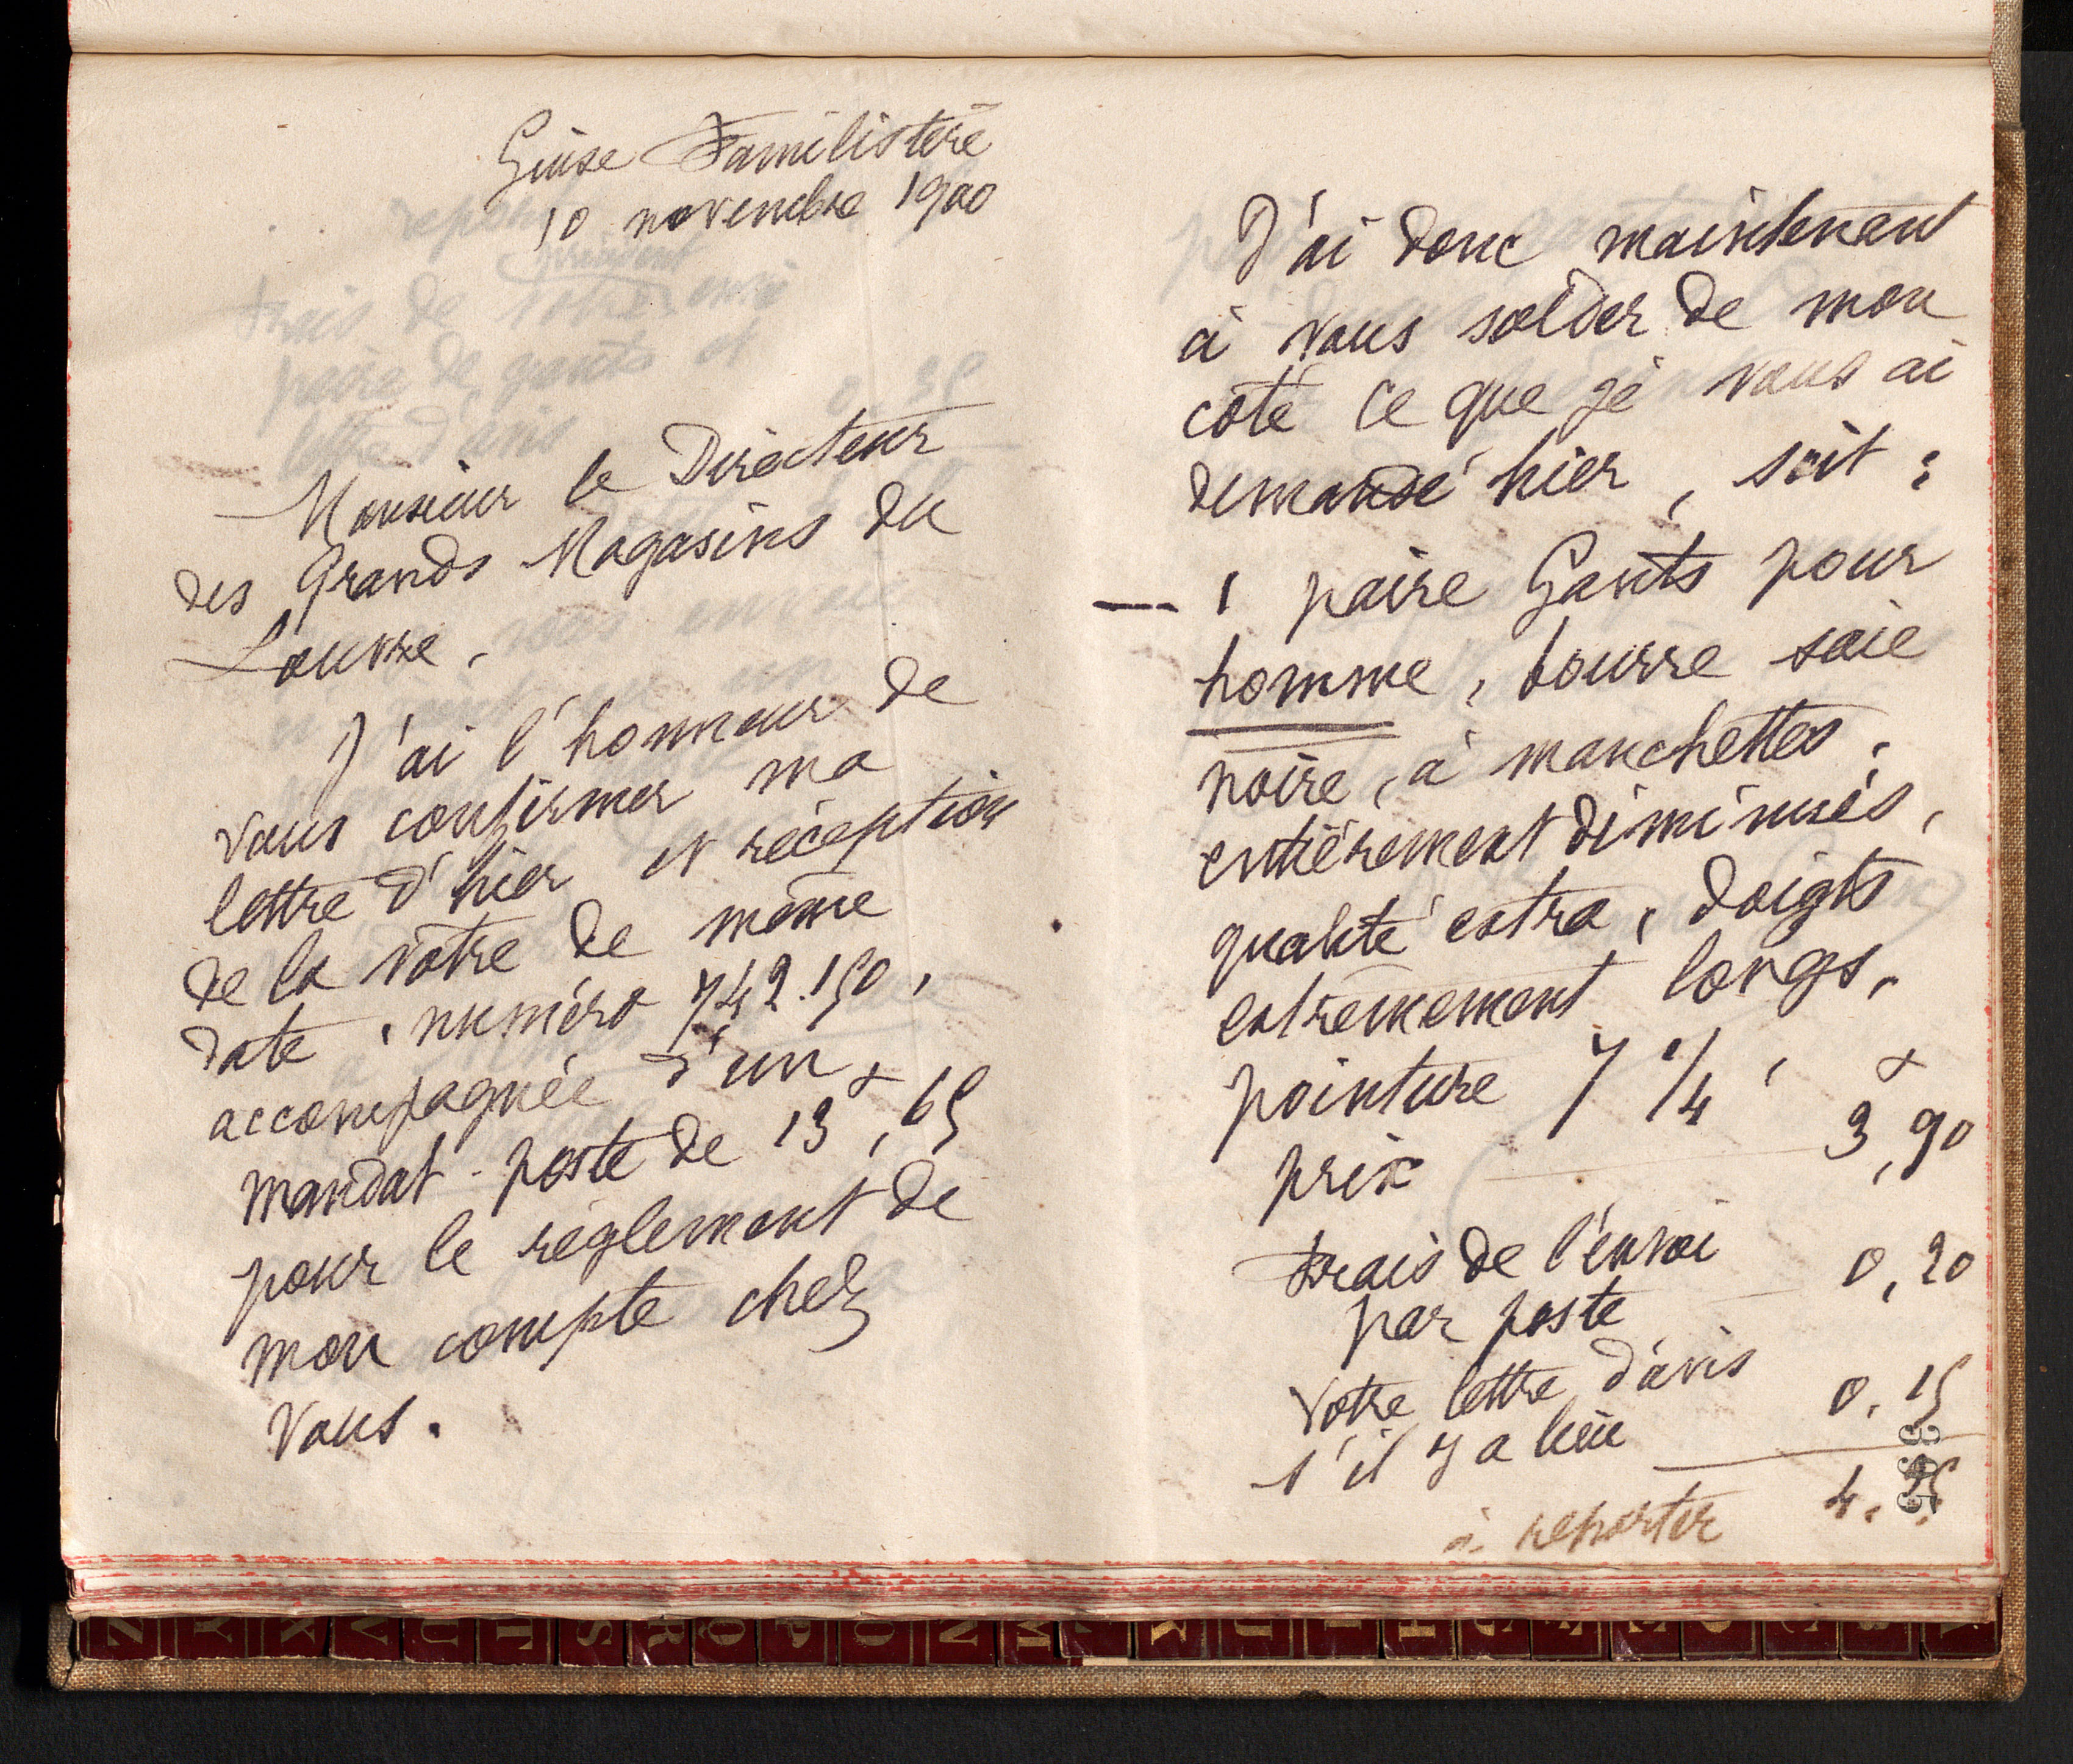 Guise Familistère
10 novembre 1900
Monsieur le Directeur
des Grands Magasins du
Louvre.
J'ai l'honneur de
vous confirmer ma
lettre d'hier et réception
de la vôtre de même
date, numéro 742.150,
accompagnée d'un
mandat-poste de 13f,65
pour le règlement de
mon compte chez
vous.
J'ai donc maintenant
à vous solder de mon
côté ce que je vous ai
demandé hier, soit :
— 1 paire Gants pour
homme, bourre soie
noire, à manchettes,
entièrement diminués,
qualité extra, doigts
extrêmement longs,
pointure 7 1/4,
prix 3f,90
frais de l'envoi 0,20
par poste
Votre lettre d'avis
s'il y a lieu 0,15
à reporter 4.25
Z Y X V U T S R Q P O N M L K J I H G F E D C B A